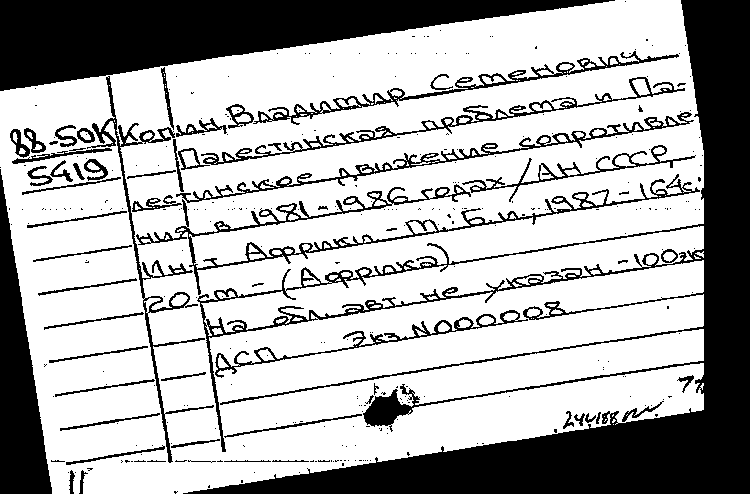 88-50К Копин, Владимир Семенович.
5419 Палестинская проблема и Па-
лестинское движение сопротивле-
ния в 1981-1986 годах / АН СССР,
Ин-т Африки - М.: Б.и., 1987. - 164с.;
20 см. - (Африка).
На обл. авт. не указан. - 100 эк
ДСП. Экз. N000008